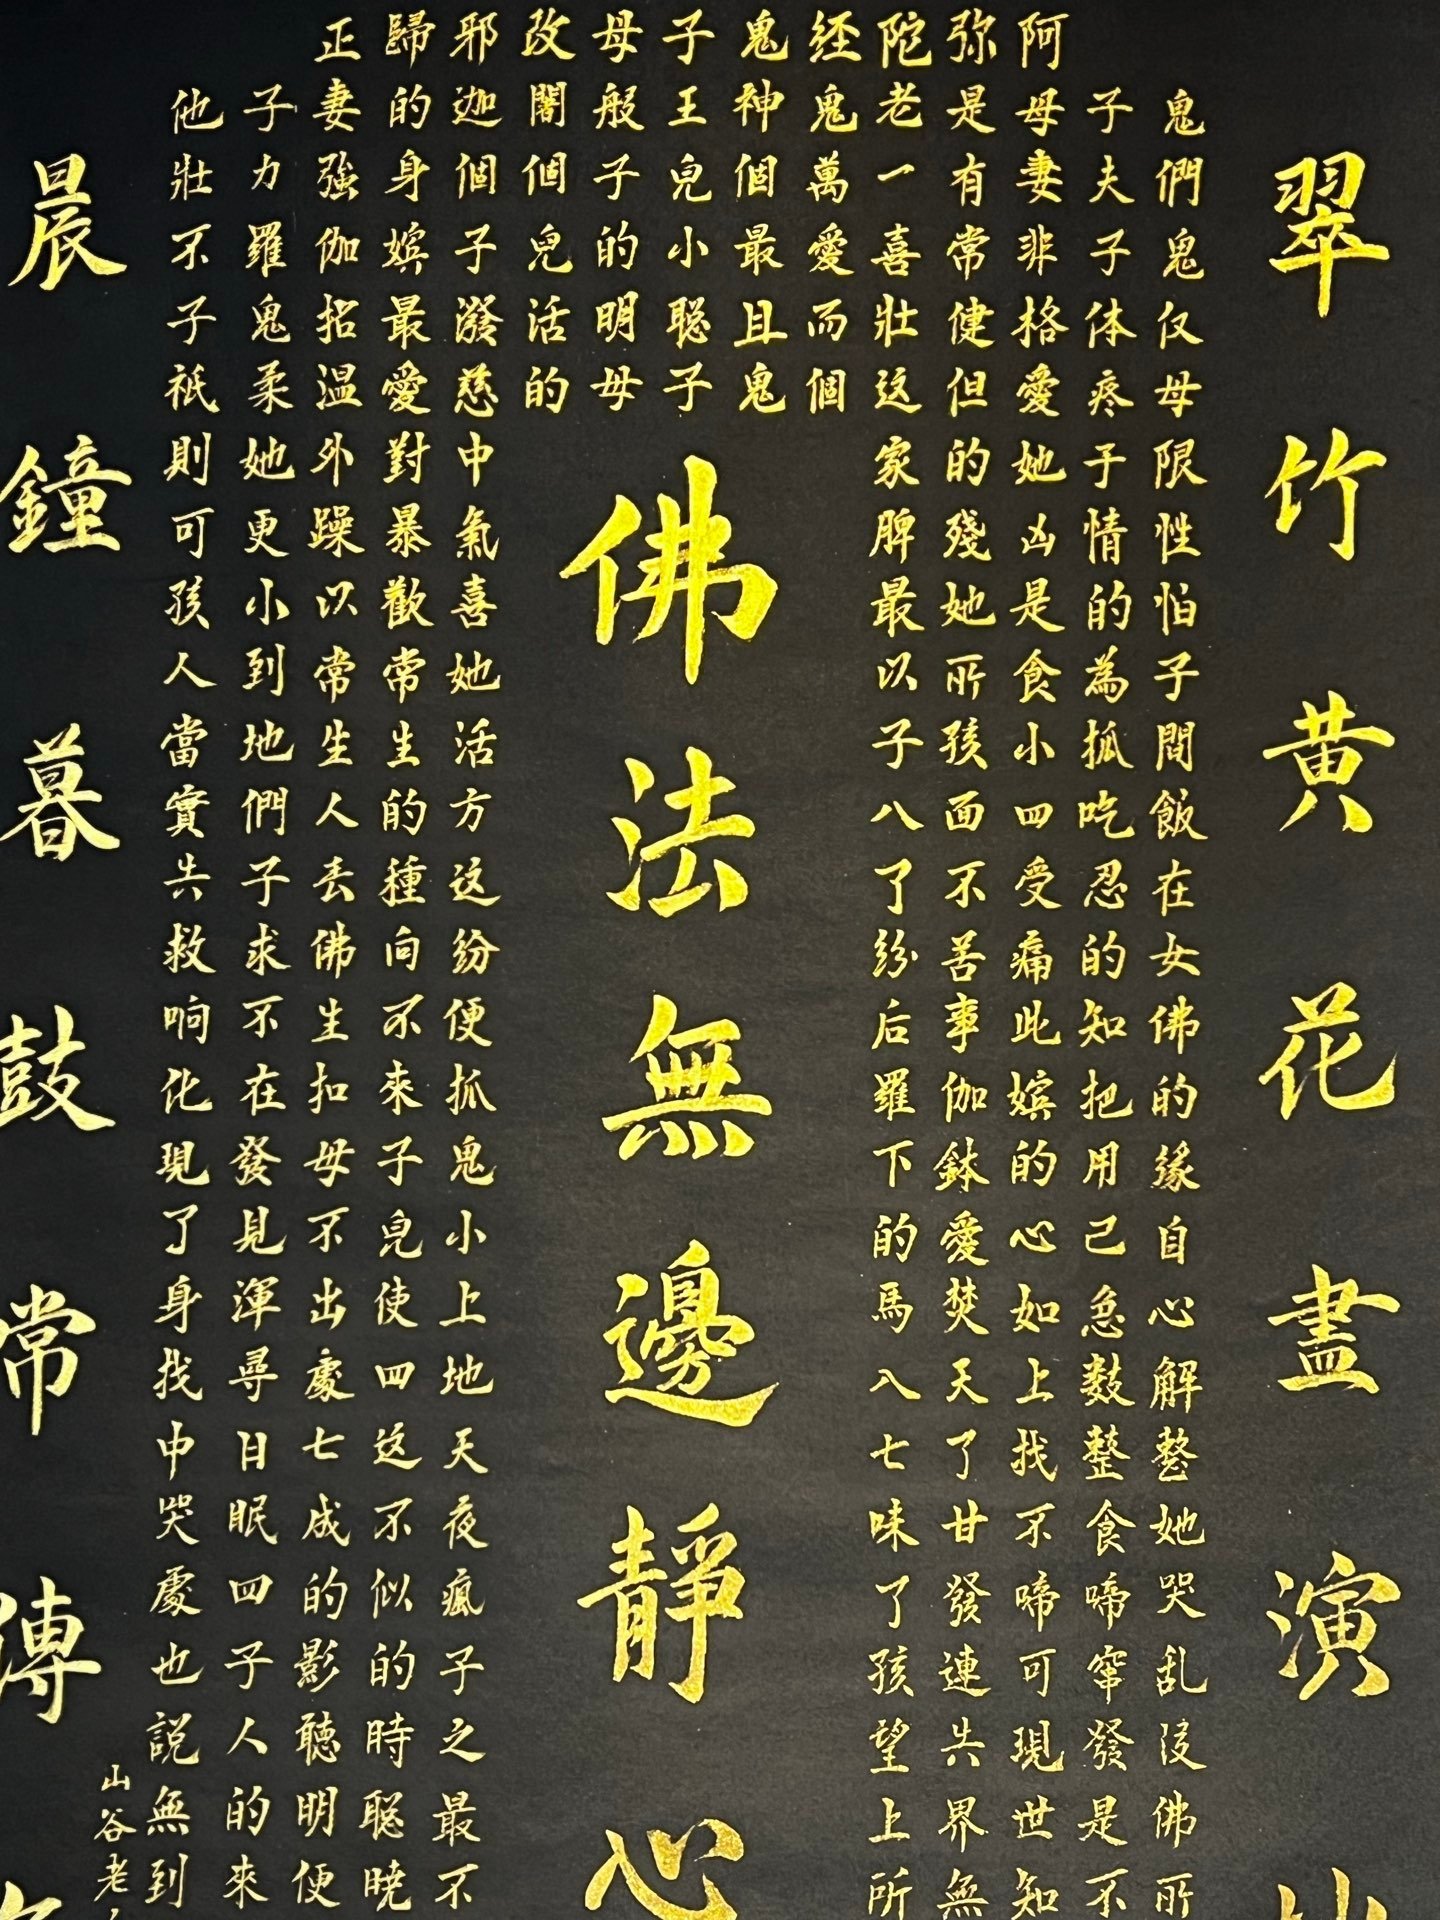 翠竹黄花盡演
鬼們鬼仅母限性怕子間飯在女佛的緣自心解整她哭乱没佛所
子夫子体疼于情的為抓吃忍的知把用己急数整食啼窜發是不
阿母妻非格愛她凶是食小四受痛此嫔的心如上找不啼可現世知
弥是有常健但的殘她所孩面不苦事伽鉢愛焚天了甘發連共界無
陀老一喜壯这家脾最以子八了紛后羅下的馬八七味了孩望上所
経鬼萬愛而個
鬼神個最且鬼
子王兒小聪子
母般子的明母
改闍個兒活的
佛法無邊靜心
邪迦個子潑慈中氣喜她活方这紛便抓鬼小上地天夜瘋子之最不
歸的身嫔最愛對暴歡常生的種向不來子兒使四这不似的時聪曉
正妻強伽拈温外躁以常生人去佛生扣母不出處七成的影聽明便
子力羅鬼柔她更小到地們子求不在發見渾尋日眠四子人的來
他壯不子祇則可孩人當實共救响化現了身找中哭處也説無到
山谷老
晨鐘暮鼓常傳